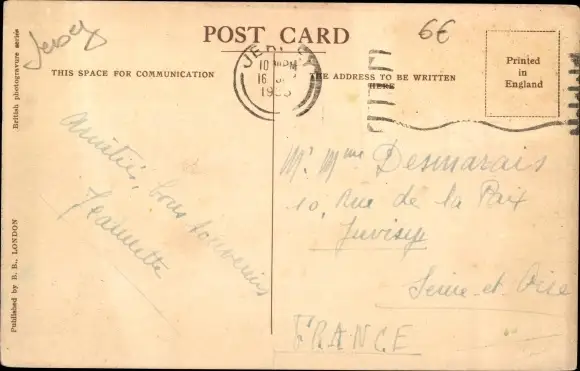 Jersey
POST CARD
6€
THIS SPACE FOR COMMUNICATION
THE ADDRESS TO BE WRITTEN
HERE
Printed
in
England
JER
10
16
19
British photogravure series
Published by B. B., LONDON
Amitiés, bons souvenirs
Jeannette
Mr. Mme Desmarais
10, Rue de la Paix
Juvisy
Seine-et-Oise
FRANCE